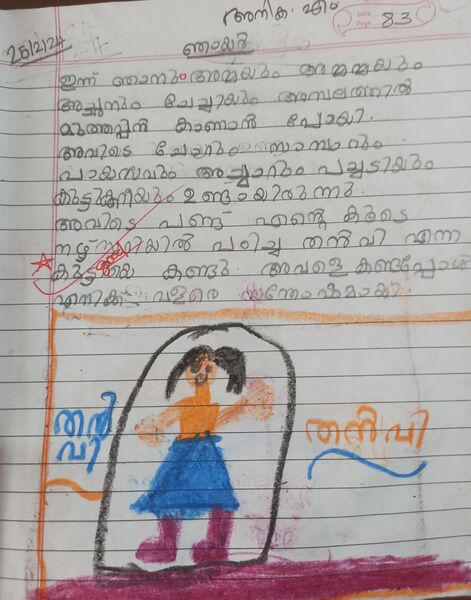 അനിക. എം
Date
Page 83
25/2/24
ഞായർ
ഇന്ന് ഞാനും അമ്മയും അമ്മമ്മയും
അച്ഛനും ചേച്ചിയും അമ്പലത്തിൽ
മുത്തപ്പൻ കാണാൻ പോയി.
അവിടെ ചോറും സാമ്പാറും
പായസവും അച്ചാറും പച്ചടിയും
കൂട്ടുകറിയും ഉണ്ടായിരുന്നു.
അവിടെ പണ്ട് എന്റെ കൂടെ
നഴ്സറിയിൽ പഠിച്ച തൻവി എന്ന
കുട്ടിയെ കണ്ടു. അവളെ കണ്ടപ്പോൾ
എനിക്ക് വളരെ സന്തോഷമായി
തൻ
വി
തൻവി